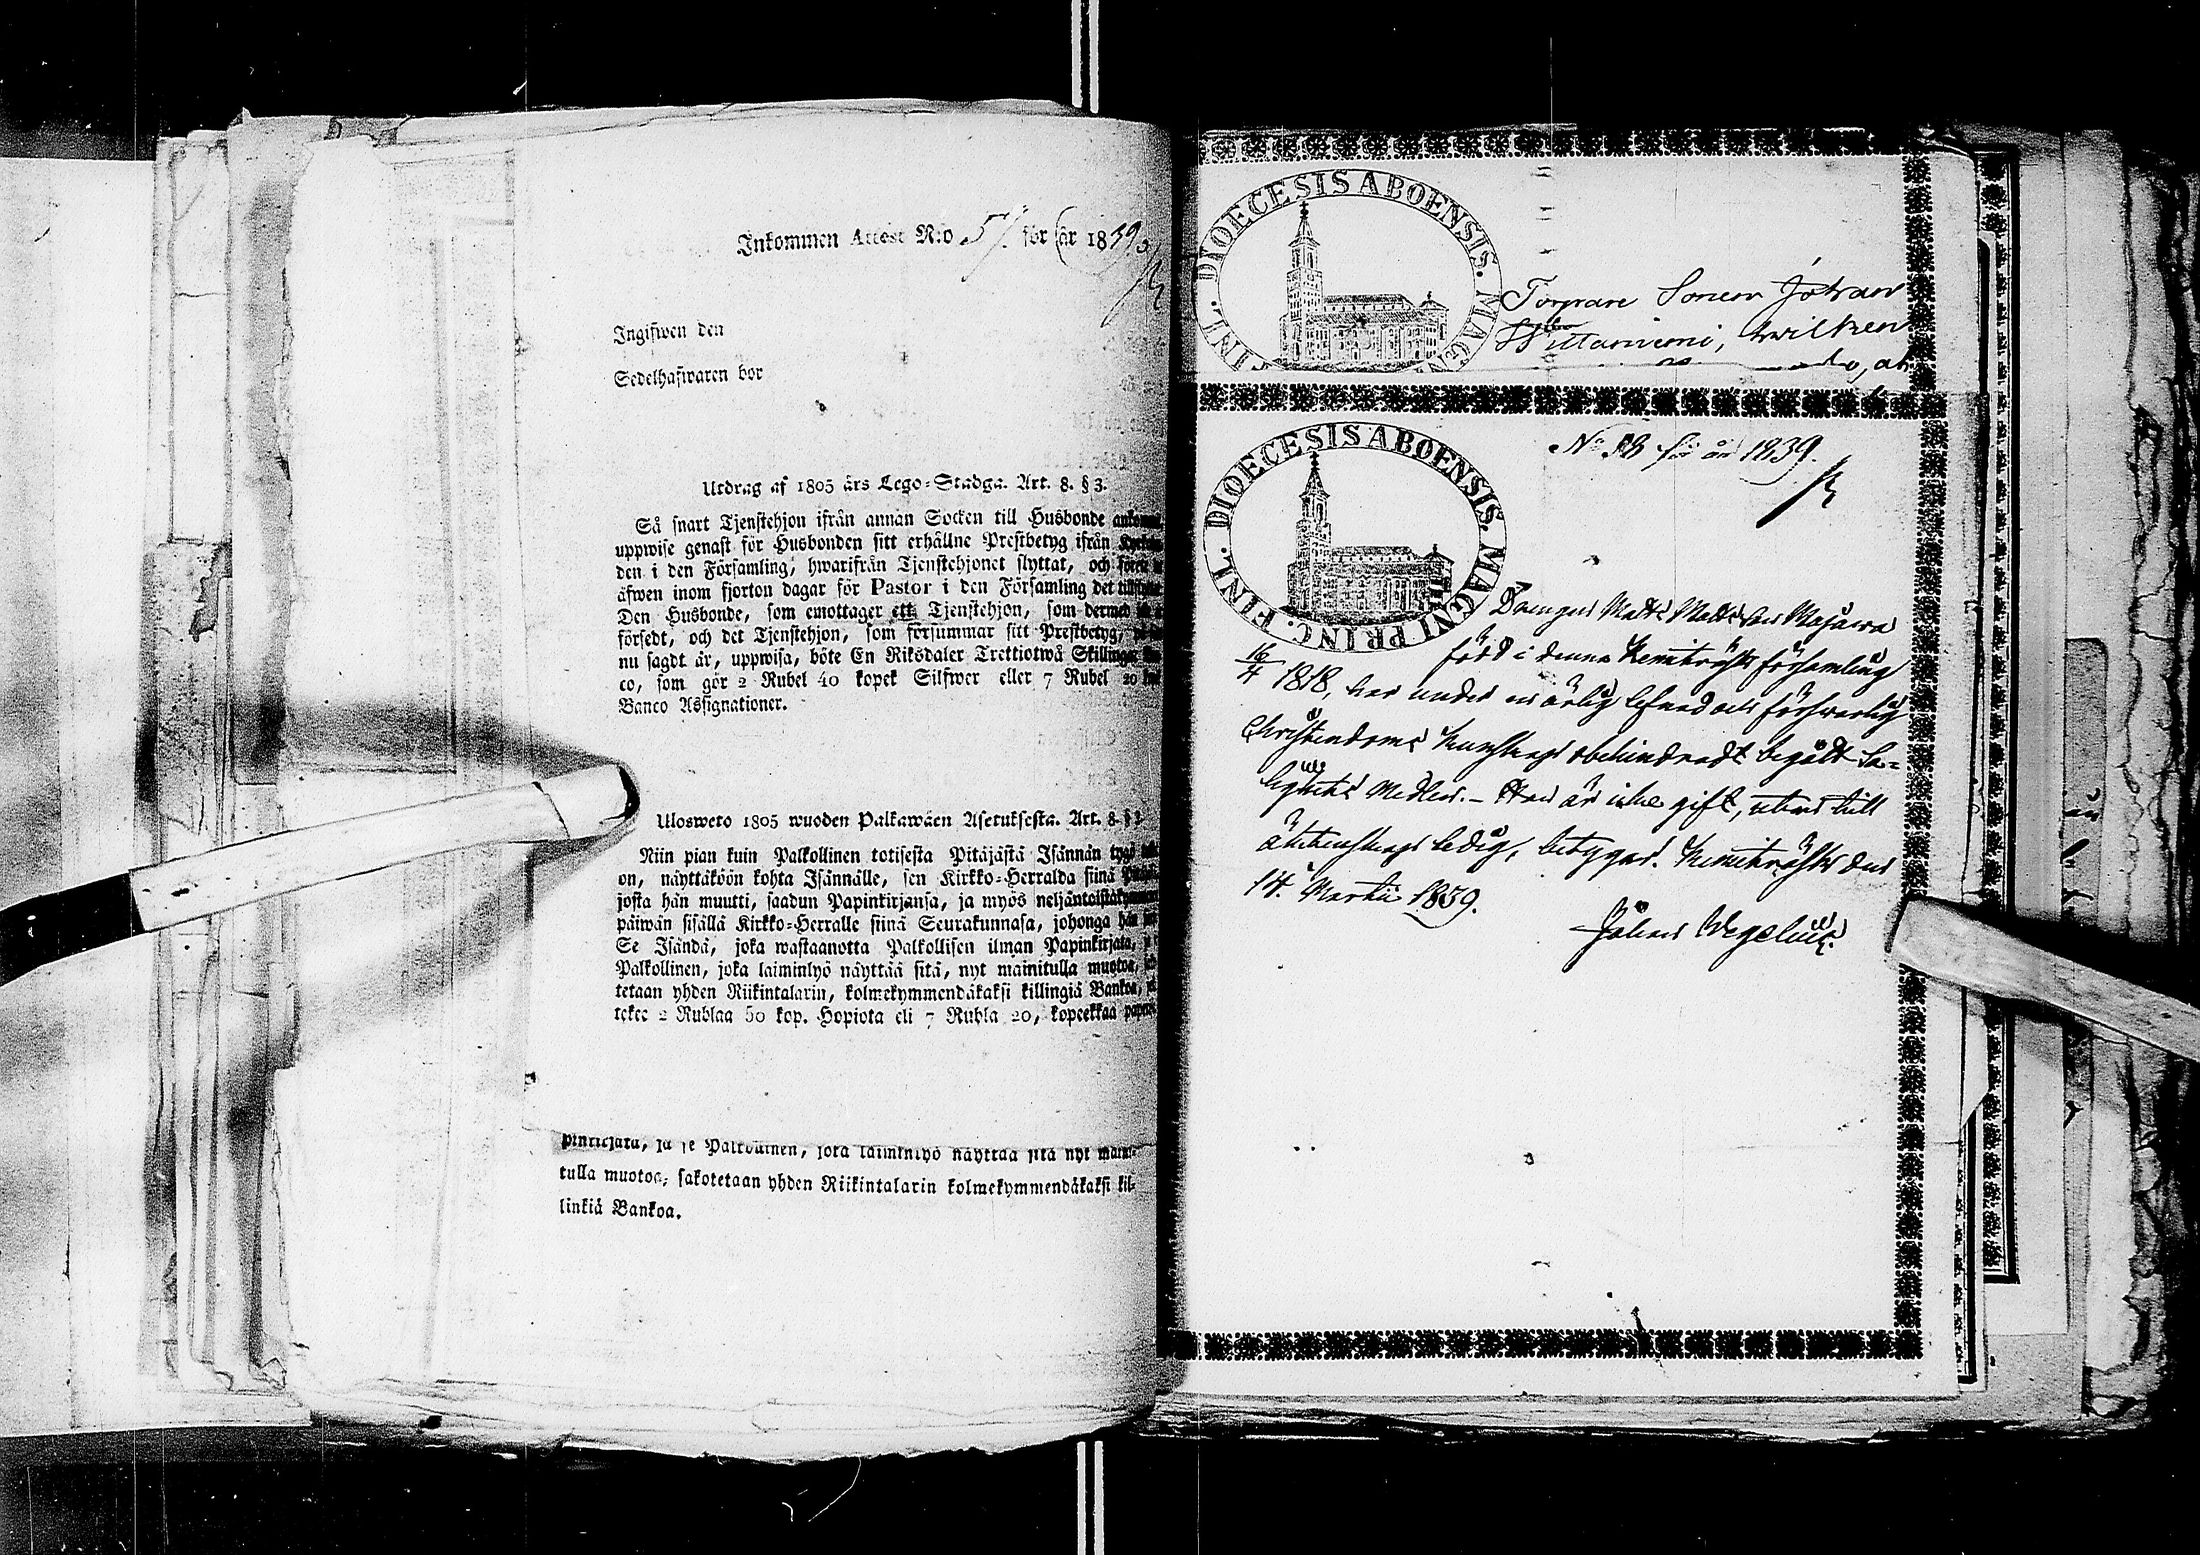 Inkommen Attest N:o 57. för år 1839.
Ingifwen den
Sedelhafwaren bor
Utdrag af 1805 års Lego-Stadga. Art. 8. § 3.
Så snart Tjenstehjon ifrån annan Socken till Husbonde
uppwise genast för Husbonden sitt erhållne Prestbetyg ifrån
den i den Församling, hwarifrån Tjenstehjonet flyttat, och
äfwen inom fjorton dagar för Pastor i den Församling det
Den Husbonde, som emottager ett Tjenstehjon, som dermed
försedt, och det Tjenstehjon, som försummar sitt Prestbetyg,
nu sagdt är, uppwisa, böte En Riksdaler Trettiotwå Skillingar
co, som gör 2 Rubel 40 kopek Silfwer eller 7 Rubel 20
Banco Assignationer.
Ulosweto 1805 wuoden Palkawäen Asetuksesta. Art. 8. § 3
Niin pian kuin Palkollinen totisesta Pitäjästä Isännän tygö
on, näyttäköön kohta Isännälle, sen Kirkko-Herralda siinä
josta hän muutti, saadun Papinkirjansa, ja myös
päiwän sisällä Kirkko-Herralle siinä Seurakunnasa, johonga hän
Se Isändä, joka wastaanotta Palkollisen ilman Papinkirjata,
Palkollinen, joka laiminlyö näyttää sitä, nyt mainitulla muotoa,
tetaan yhden Riikintalarin, kolmekymmendäkaksi killingiä Bankoa,
tekee 2 Rublaa 50 kop. Hopiota eli 7 Rubla 20, kopeekkaa
pinkirjata, ja se Palkollinen, jota laiminlyö näyttää sitä nyt maini-
tulla muotoa, sakotetaan yhden Riikintalarin kolmekymmendäkaksi kil-
linkiä Bankoa.
DIOECESIS ABOENSIS. MAGNI FINL.
Torpare Sonen Johan
, hwilken
at
No 58 för år 1839.
DIOECESIS ABOENSIS. MAGNI PRINC. FINL.
Drengen Matts Mattsson Majawa
född i denna Kemiträsk församling
16/4 1818, har under en ärlig lefnad och försvarlig
Christendoms kunskap obehindradt begått Sa-
lighetens Medlen. – Han är icke gift, utan till
äktenskap ledig, betygar. Kemiträsk den
14. Martii 1839.
Johan Wegelius.